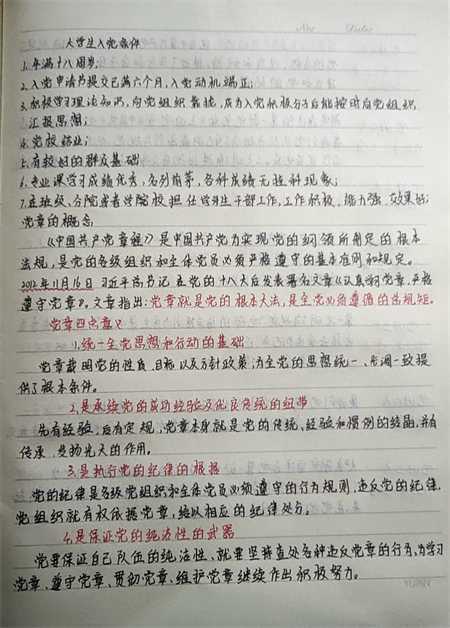 No.
Date
大学生入党条件
1.年满十八周岁;
2.入党申请书提交已满六个月,入党动机端正;
3.积极学习理论知识,向党组织靠拢,成为入党积极分子后能按时向党组织
汇报思想;
4.党校结业;
5.有较好的群众基础
6.专业课学习成绩优秀,名列前茅,各科成绩无挂科现象;
7.在班级、分院或者学院校担任学生干部工作,工作积极,能力强,效果好;
党章的概念
《中国共产党章程》是中国共产党为实现党的纲领所制定的根本
法规,是党的各级组织和全体党员必须严格遵守的准则和规定。
2012年11月16日习近平总书记在党的十八大后发表署名文章《认真学习党章,严格
遵守党章》。文章指出:党章就是党的根本大法,是全党必须遵循的总规矩。
党章四点意义
1.统一全党思想和行动的基础
党章载明党的性质、目标以及方针政策,为全党的思想统一、步调一致提
供了根本条件。
2.是承续党的成功经验及优良传统的纽带
先有经验,后有定规,党章本身就是党的传统、经验和惯例的结晶,并有
传承、发扬光大的作用。
3.是执行党的纪律的根据
党的纪律是各级党组织和全体党员必须遵守的行为规则,违反党的纪律,
党组织就有权依据党章,给以相应的纪律处分。
4.是保证党的纯洁性的武器
党要保证自己队伍的纯洁性,就要坚持查处各种违反党章的行为,为学习
党章、遵守党章、贯彻党章、维护党章继续作出积极努力。
YUPIN